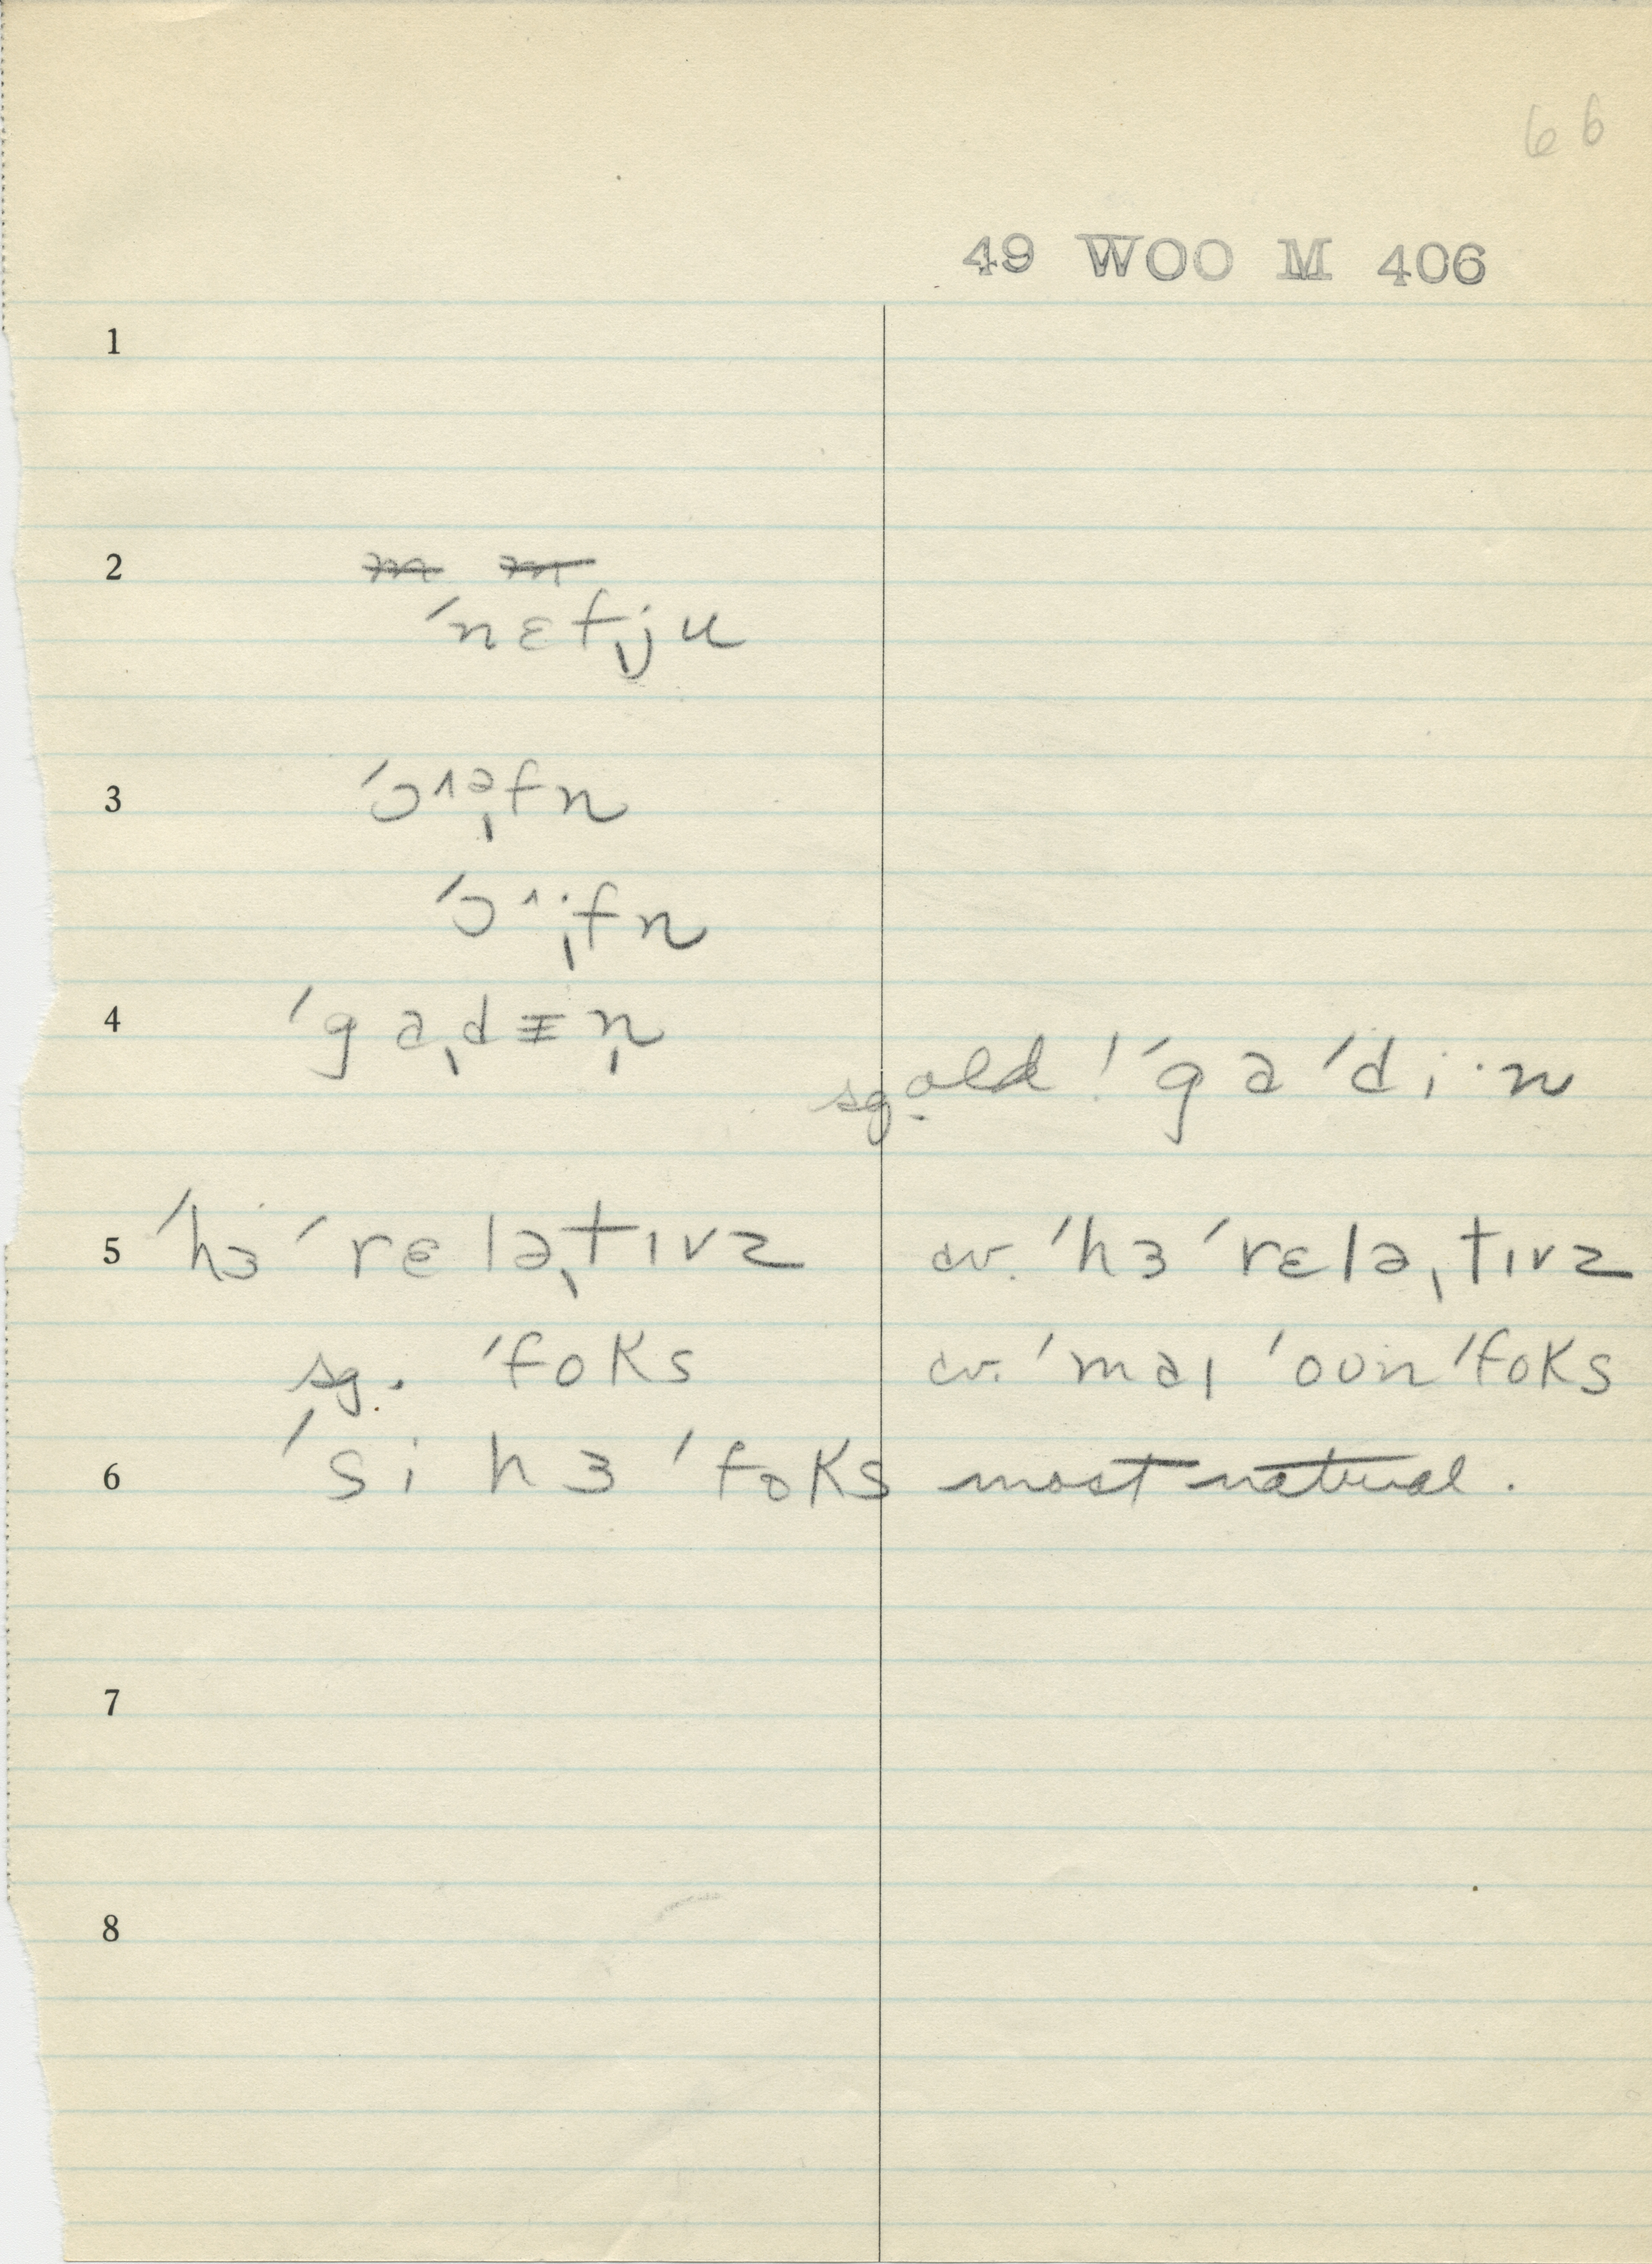 66
49 WOO M 406
1
2
ˈnɛfˌju
3 ˈɔ^əˌfn
ˈɔ^iˌfn
4 ˈgaˌdɪ̵ˌn
sg. old ! ˈgaˈdi·n
5 ˈhɜˈrɛləˌtɪvz cv. ˈhɜˈrɛləˌtɪvz
sg. ˈfoks cv. ˈmaɪ ˈoʊnˈfoks
6 ˈsi hɜ ˈfoks most natural.
7
8